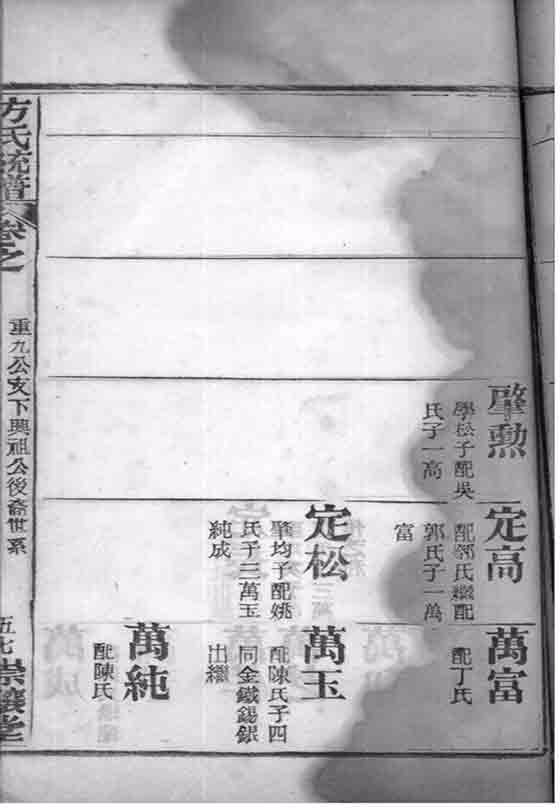 肈勲
學松子配吳
氏子一高
定高
配鄧氏繼配
郭氏子一萬
富
萬富
配丁氏
定松
肈均子配姚
氏子二萬玉
純成
萬玉
配陳氏子四
同金鐵錫銀
出繼
萬純
配陳氏
方氏統
卷之
重九公支下興祖公後裔世系
五七